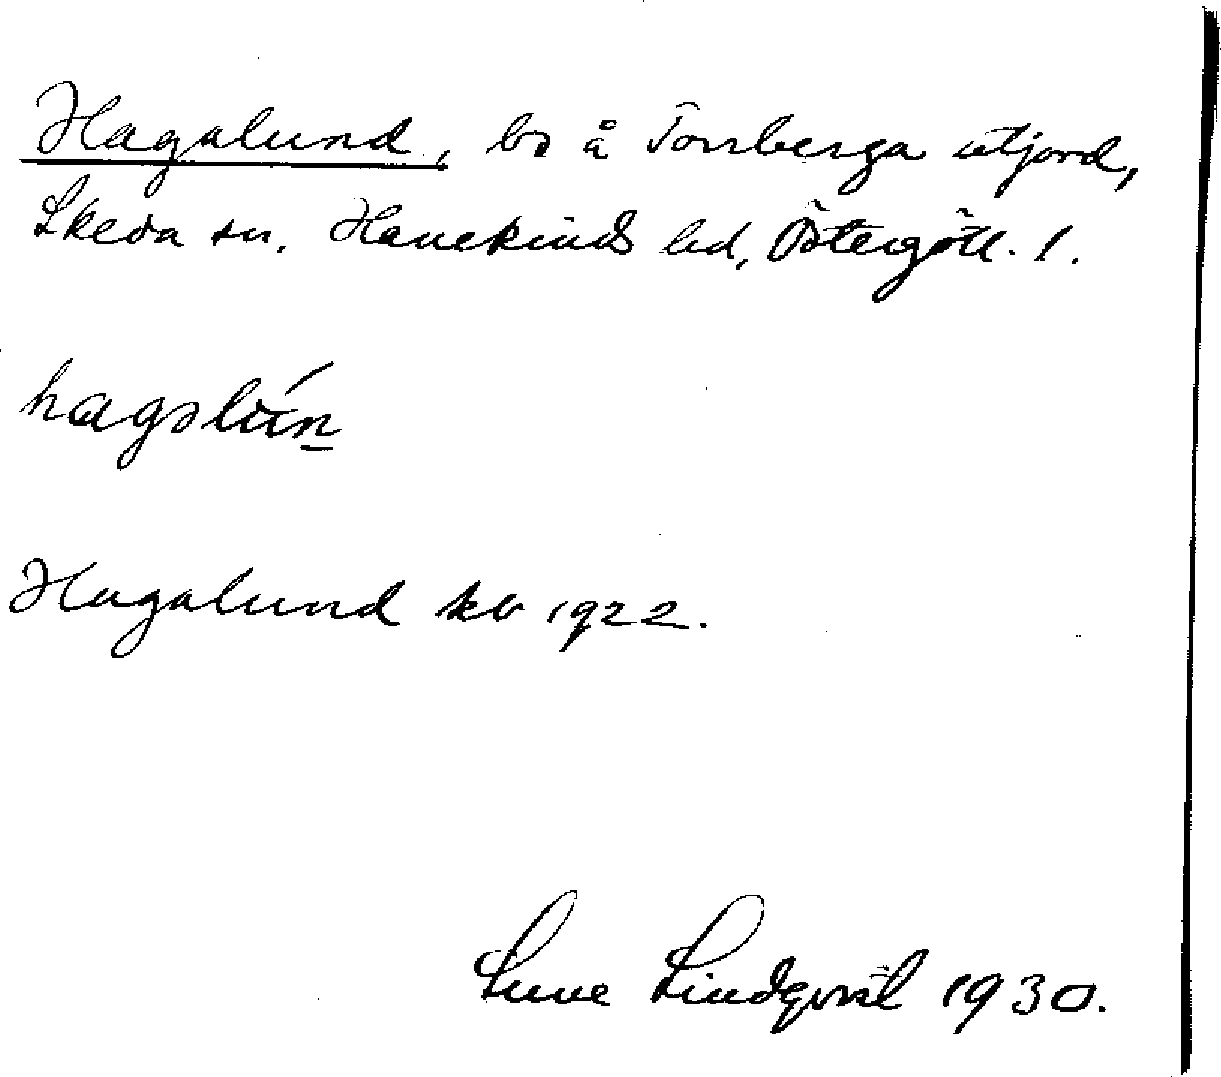 Hagalund, bs å Torrberga utjord,
Skeda sn. Hanekinds hd, Östergötl. l.
hagəlún
Hagalund kb 1922.
Sune Lindqvist 1930.